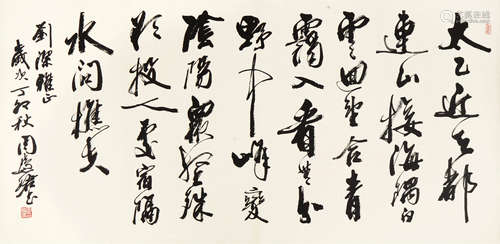 太乙近天都
連山接海隅白
雲迴望合青
靄入看無分
野中峰變
陰陽衆壑殊
欲投人處宿隔
水問樵夫
劉傑雅正
歲次丁卯秋周慧珺書